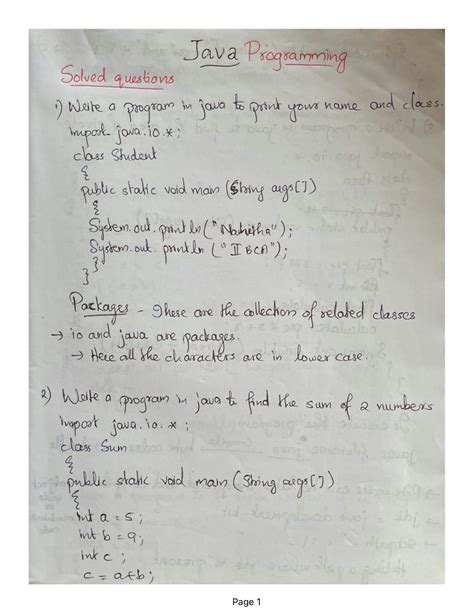 Java Programming
Solved questions
1) Write a program in java to print your name and class.
import java.io.*;
class Student
{
public static void main (String args[])
{
System.out.println("Nahitha");
System.out.println ("II BCA");
}
}
Packages - These are the collection of related classes
→ io and java are packages.
→ Here all the characters are in lower case.
2) Write a program in java to find the sum of 2 numbers
import java.io.*;
class Sum
{
public static void main (String args[])
{
int a = 5;
int b = 9;
int c;
c = a+b;
Page 1